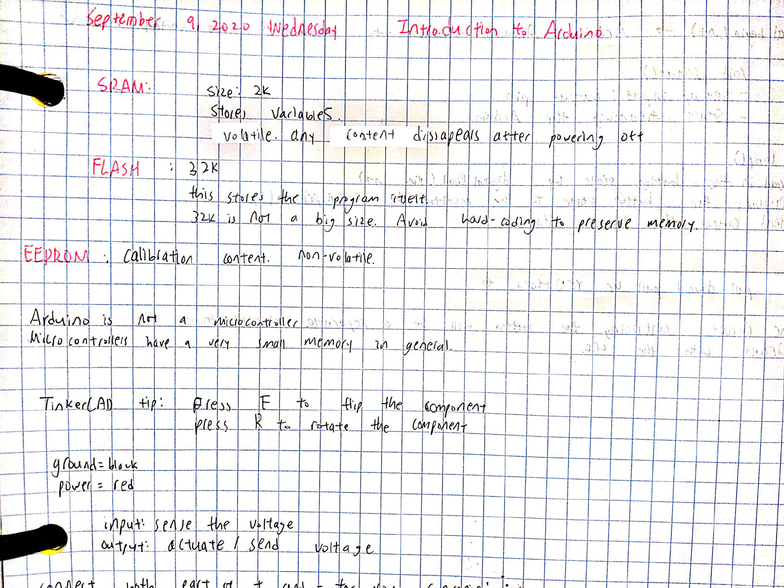 September 9, 2020 Wednesday Introduction to Arduino
SRAM: size: 2K
stores variables.
volatile. any content dissapears after powering off
FLASH : 32K
this stores the program itself.
32K is not a big size. Avoid hard-coding to preserve memory.
EEPROM : calibration content. non-volatile.
Arduino is not a microcontroller
Microcontrollers have a very small memory in general.
TinkerCAD tip: press F to flip the component
press R to rotate the component
ground = black
power = red
input: sense the voltage
output: actuate / send voltage
connect both part of